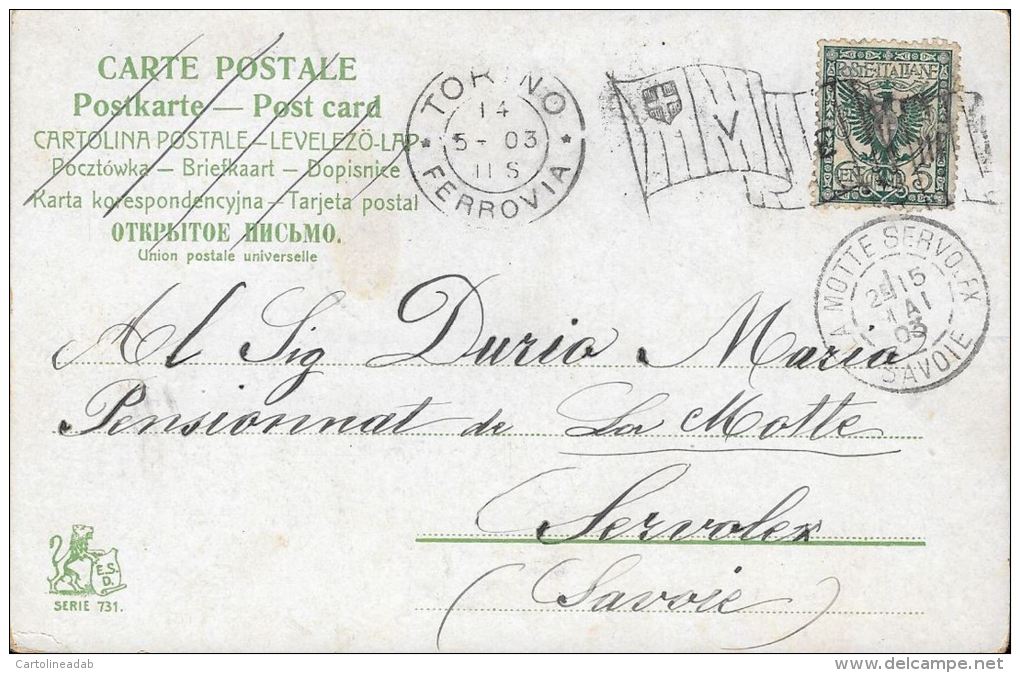 CARTE POSTALE
Postkarte — Post card
CARTOLINA POSTALE – LEVELEZÖ-LAP
Pocztówka – Briefkaart – Dopisnice
Karta korespondencyjna – Tarjeta postal
ОТКРЫТОЕ ПИСЬМО.
Union postale universelle
TORINO
14
5 - 03
11 S
* FERROVIA *
V
POSTE ITALIANE
CENT. 5
LA MOTTE SERVOLEX
2E 15
MAI
03
SAVOIE
Al Sig Durio Maria
Pensionnat de La Motte
Servolex
(Savoie)
E.S.
D.
SERIE 731.
Cartolineadab
delcampe.net